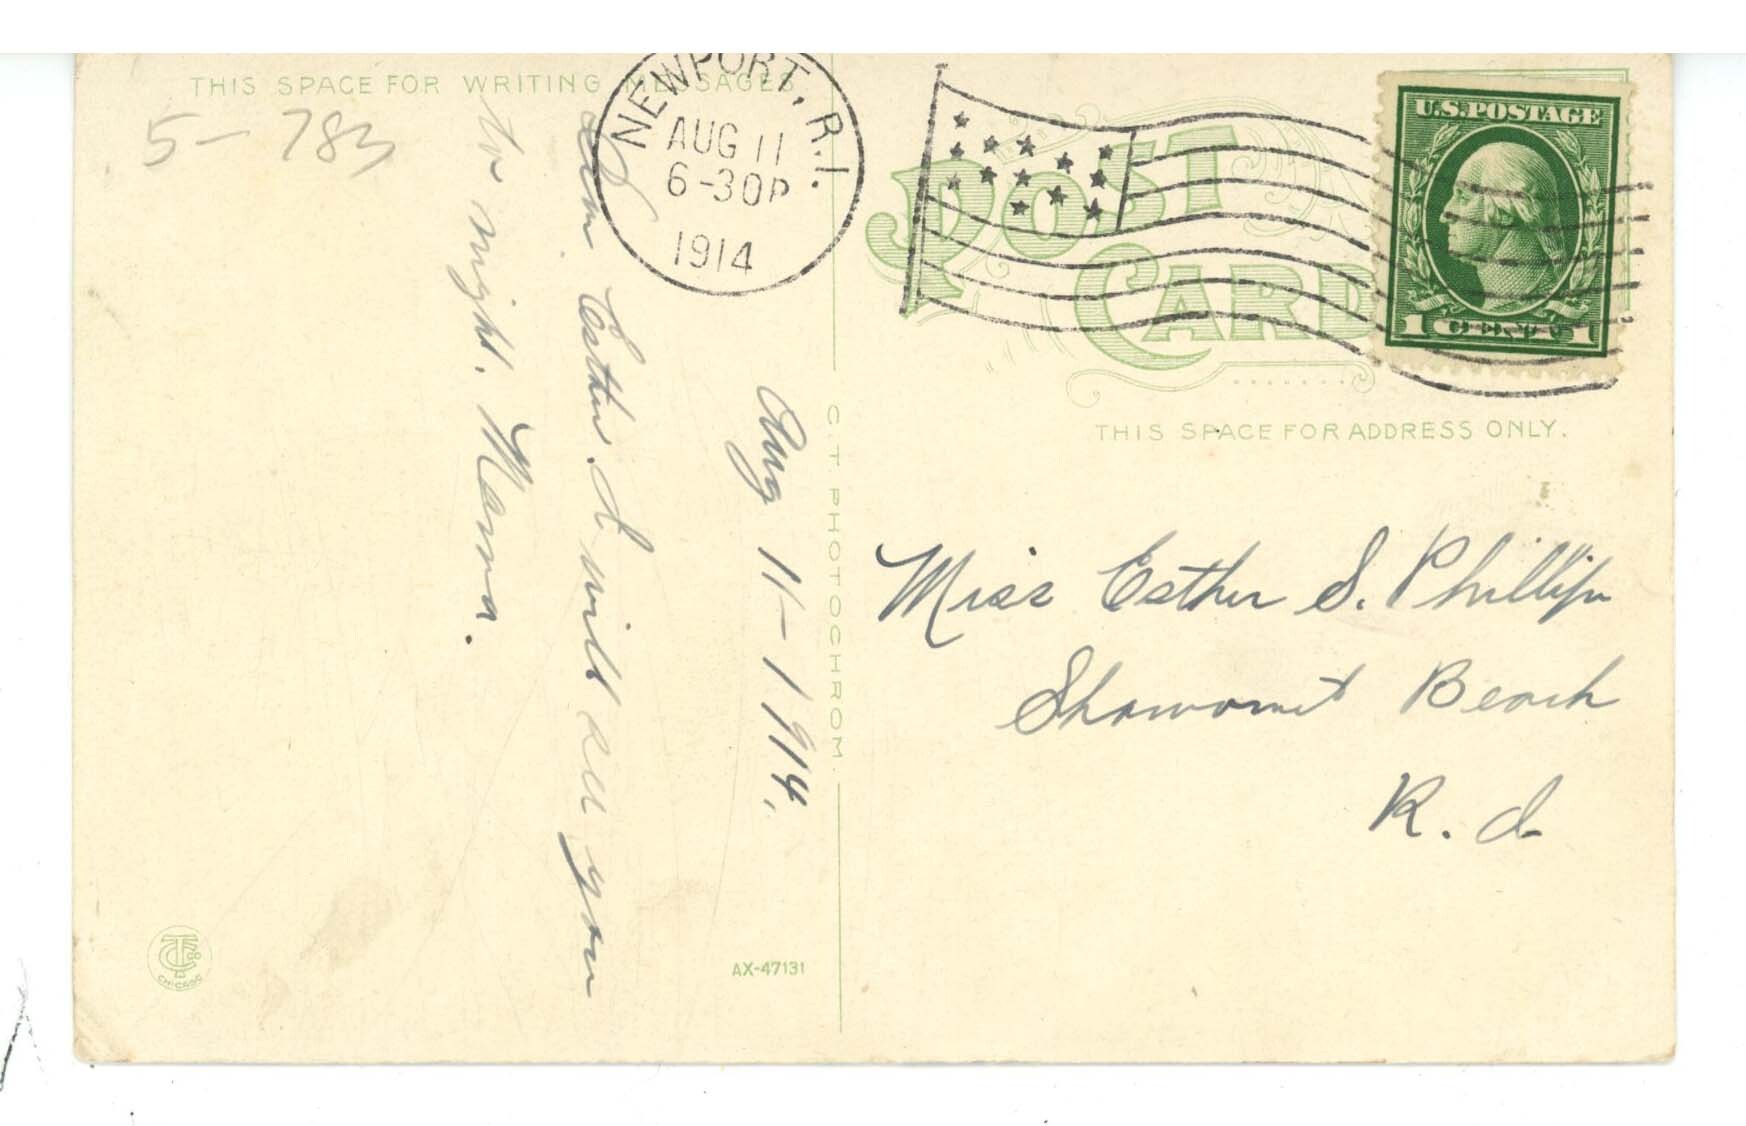 THIS SPACE FOR WRITING MESSAGES
5-783
NEWPORT, R.I.
AUG 11
6-30P
1914
U.S.POSTAGE
1 CENT 1
POST
CARD
THIS SPACE FOR ADDRESS ONLY.
Aug 11-1914.
Dear Esther. I will see you
to night. Mama.
C T PHOTOCHROM
Miss Esther S. Phillips
Shawomet Beach
R. I.
AX-47131
CHICAGO